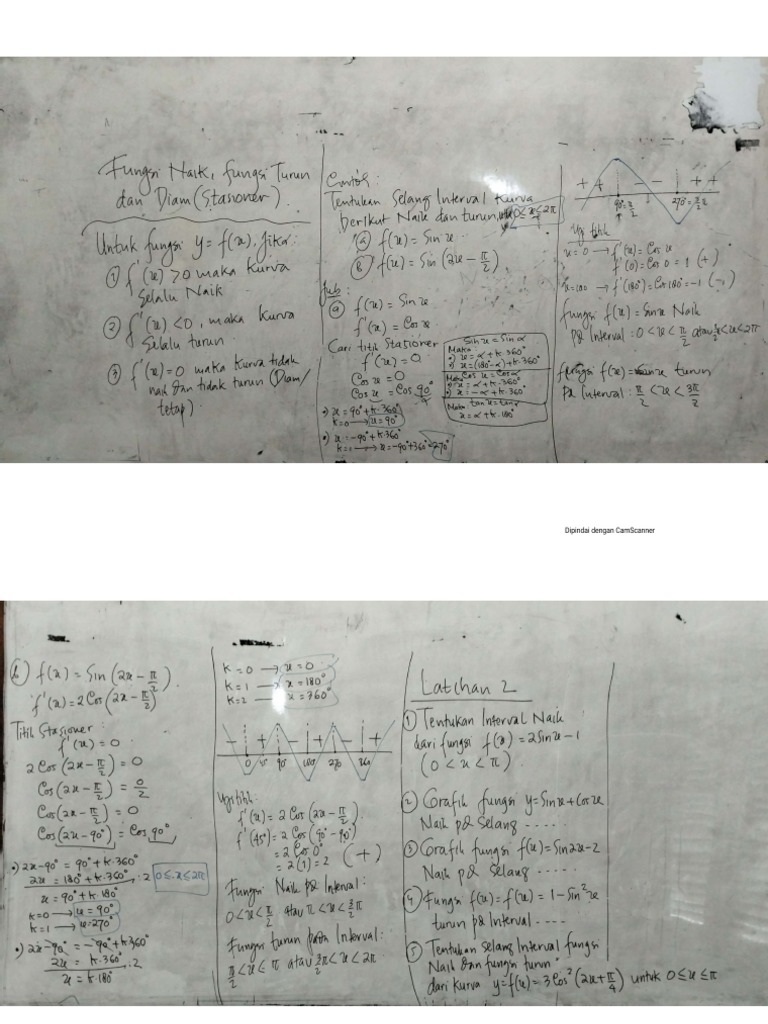 Fungsi Naik, fungsi Turun
dan Diam (Stasioner).
Untuk fungsi y = f(x), Jika:
① f'(x) > 0 maka Kurva
Selalu Naik
② f'(x) < 0, maka Kurva
Selalu turun
③ f'(x) = 0 maka Kurva tidak
naik dan tidak turun (Diam/
tetap).
Contoh:
Tentukan Selang Interval Kurva
berikut Naik dan turun, 0 ≤ x ≤ 2π
ⓐ f(x) = Sin x
ⓑ f(x) = Sin (2x - π/2)
Jwb:
ⓐ f(x) = Sin x
f'(x) = Cos x
Cari titik Stasioner
f'(x) = 0
Cos x = 0
Cos x = Cos 90°
•) x = 90° + k.360°
k=0 → x = 90°
•) x = -90° + k.360°
k=1 → x = -90° + 360° = 270°
Sin x = Sin α
Maka:
•) x = α + k.360°
•) x = (180° - α) + k.360°
Cos x = Cos α
Maka:
•) x = α + k.360°
•) x = -α + k.360°
tan x = tan α
Maka:
x = α + k.180°
+ + - - + +
90° = π/2
270° = 3/2 π
Uji titik
x = 0 → f'(x) = Cos x
f'(0) = Cos 0 = 1 (+)
x = 180 → f'(180°) = Cos 180° = -1 (-)
fungsi f(x) = Sin x Naik
pd Interval : 0 < x < π/2 atau 3/2 π < x < 2π
fungsi f(x) = Sin x turun
Pd Interval : π/2 < x < 3π/2
Dipindai dengan CamScanner
ⓑ f(x) = Sin (2x - π/2).
f'(x) = 2 Cos (2x - π/2)
Titik Stasioner:
f'(x) = 0
2 Cos (2x - π/2) = 0
Cos (2x - π/2) = 0/2
Cos (2x - π/2) = 0
Cos (2x - 90°) = Cos 90°
•) 2x - 90° = 90° + k.360
2x = 180° + k.360° :2
x = 90° + k.180°
k=0 → x = 90°
k=1 → x = 270°
0 ≤ x ≤ 2π
•) 2x - 90° = -90° + k.360°
2x = k.360° :2
x = k.180°
k = 0 → x = 0
k = 1 → x = 180°
k = 2 → x = 360°
- + - + +
0 45° 90° 180° 270 360
Uji titik:
f'(x) = 2 Cos (2x - π/2)
f'(45°) = 2 Cos (90° - 90°)
= 2 Cos 0°
= 2(1) = 2 (+)
Fungsi Naik pd Interval:
0 < x < π/2 atau π < x < 3/2 π
Fungsi turun pada Interval:
π/2 < x ≤ π atau 3/2 π < x < 2π
Latihan 2
① Tentukan Interval Naik
dari fungsi f(x) = 2 Sin x - 1
(0 < x < π).
② Grafik fungsi y = Sin x + Cos x
Naik pd Selang .....
③ Grafik fungsi f(x) = Sin 2x - 2
Naik pd Selang .....
④ Fungsi f(x) = f(x) = 1 - Sin² x
turun pd Interval ....
⑤ Tentukan Selang Interval fungsi
Naik dan fungsi turun
dari kurva y = f(x) = 3 Cos² (2x + π/4) untuk 0 ≤ x ≤ π